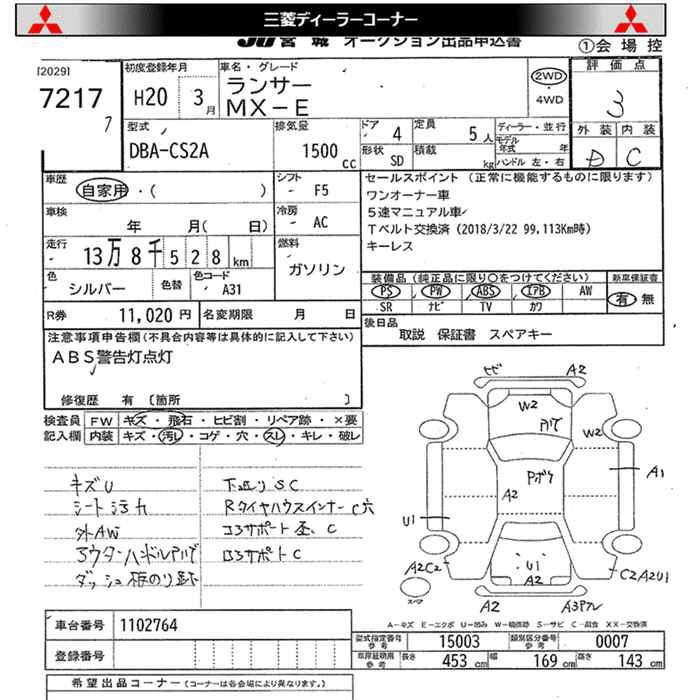 三菱ディーラーコーナー
JU 宮城 オークション出品申込書 ①会場控
[2029] 初度登録年月 車名・グレード 評価点
7217 H20 3月 ランサー 2WD 3
7 MX-E 4WD
型式 排気量 ドア 4 定員 5人 ディーラー・並行 外装 内装
DBA-CS2A 1500cc 形状 SD 積載 kg モデル年式 年 D C
ハンドル 左・右
車歴 自家用・( ) シフト F5 セールスポイント (正常に機能するものに限ります)
ワンオーナー車
車検 年 月( 日) 冷房 AC 5速マニュアル車
Tベルト交換済 (2018/3/22 99,113Km時)
走行 13万8千528km 燃料 ガソリン キーレス
色 シルバー 色替 色コード A31 装備品 (純正品に限り○をつけてください) 新車保証書
PS PW ABS エアB AW 有 無
SR ナビ TV カワ
R券 11,020円 名変期限 月 日 後日品
取説 保証書 スペアキー
注意事項申告欄(不具合内容等は具体的に記入して下さい)
ABS警告灯点灯
修復歴 有 [箇所 ]
検査員 FW キズ・飛石・ヒビ割・リペア跡・×要
記入欄 内装 キズ・汚レ・コゲ・穴・スレ・キレ・破レ
キズU 下廻りSC
シート汚れ RタイヤハウスインナーC穴
外AW コアサポート歪、C
ステアリングハンドル
ロアサポートC
ヒビ A2
W2
W2
Pボケ
A2
A1
U1
U1
A2C2 A2 C2A2U1
スペア A2
A-キズ E-エクボ U-凹み W-補修跡 S-サビ C-腐食 XX-交換済
車台番号 1102764 型式指定番号 参考 15003 類別区分番号 参考 0007
登録番号 車庫証明用 参考 長さ 453cm 幅 169cm 高さ 143cm
希望出品コーナー (コーナーは各会場により異なります。)